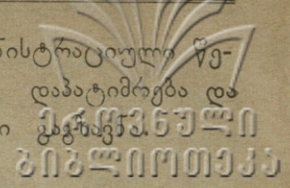 ნისტრაციული წე-
დაპატიმრება და
ი გაგზავნა.
ეროვნული
ბიბლიოთეკა